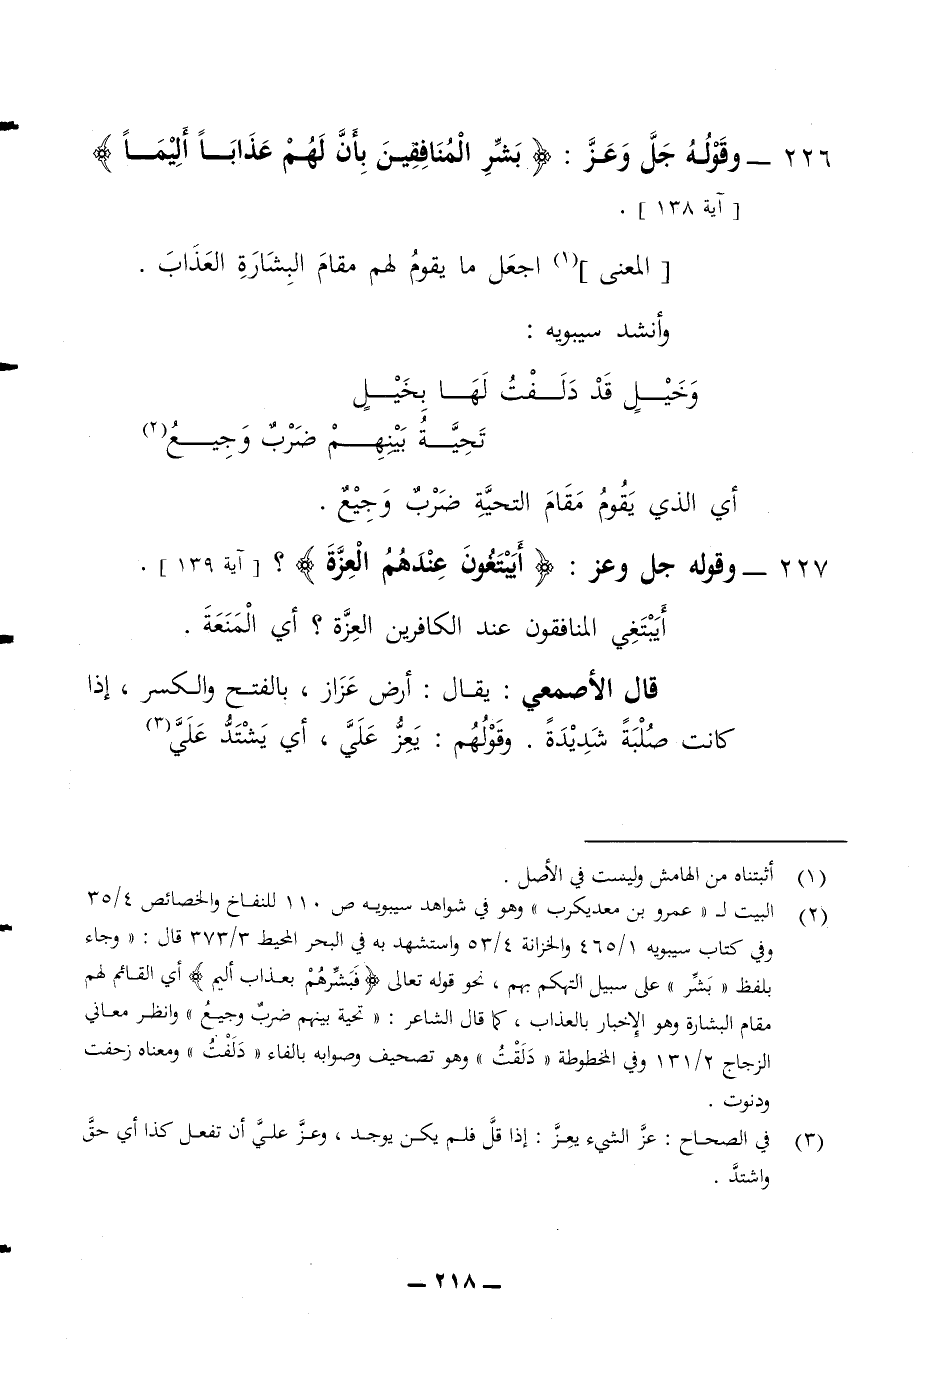 ٢٢٦ ــ وقَوْلُهُ جَلَّ وَعَزَّ : ﴿ بَشِّرِ الْمُنَافِقِينَ بِأَنَّ لَهُمْ عَذَابَــاً أَلِيْمَــاً ﴾
[ آية ١٣٨ ] .
[ المعنى ](١) اجعَل ما يقومُ لهم مقامَ البِشَارَةِ العَذَابَ .
وأنشد سيبويه :
وَخَيْــلٍ قَدْ دَلَــفْتُ لَهَــا بِخَيْــلٍ
تَحِيَّــةُ بَيْنِهِــمْ ضَرْبٌ وَجِيــعُ(٢)
أي الذي يَقُومُ مَقَامَ التحيَّةِ ضَرْبٌ وَجِيْعٌ .
٢٢٧ ــ وقوله جل وعز : ﴿ أَيَبْتَغُونَ عِنْدَهُمُ الْعِزَّةَ ﴾ ؟ [ آية ١٣٩ ] .
أَيَبْتَغِي المنافقون عند الكافرين العِزَّة ؟ أي الْمَنَعَةَ .
قال الأصمعي : يقـال : أرض عَزَاز ، بالفتح والـكسر ، إذا
كانت صُلْبَةً شَدِيْدَةً . وقَوْلُهُم : يَعِزُّ عَلَيَّ ، أي يَشْتَدُّ عَلَيَّ(٣)
(١) أثبتناه من الهامش وليست في الأصل .
(٢) البيت لـ « عمرو بن معديكرب » وهو في شواهد سيبويـه ص ١١٠ للنفـاخ والخصائص ٣٥/٤
وفي كتاب سيبويه ٤٦٥/١ والخزانة ٥٣/٤ واستشهد به في البحر المحيط ٣٧٣/٣ قال : « وجاء
بلفظ « بَشِّر » على سبيل التهكم بهم ، نحو قوله تعالى ﴿ فَبَشِّرْهُمْ بعـذاب أليم ﴾ أي القـائم لهم
مقام البشارة وهو الإخبار بالعذاب ، كما قال الشاعر : « تحية بينهم ضربٌ وجيـعُ » وانظـر معـاني
الزجاج ١٣١/٢ وفي المخطوطة « دَلَقْتُ » وهو تصحيف وصوابه بالفاء « دَلَفْتُ » ومعناه زحفت
ودنوت .
(٣) في الصحـاح : عزَّ الشيء يعِزَّ : إذا قلَّ فلـم يكـن يوجـد ، وعـزَّ علـيَّ أن تفعـل كذا أي حقَّ
واشتدَّ .
ــ ٢١٨ ــ